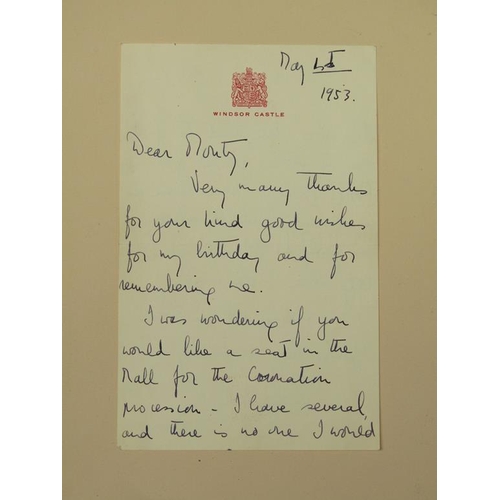 May 1st
1953.
WINDSOR CASTLE
Dear Monty,
Very many thanks
for your kind good wishes
for my birthday and for
remembering me.
I was wondering if you
would like a seat in the
Mall for the Coronation
procession - I have several,
and there is no one I would